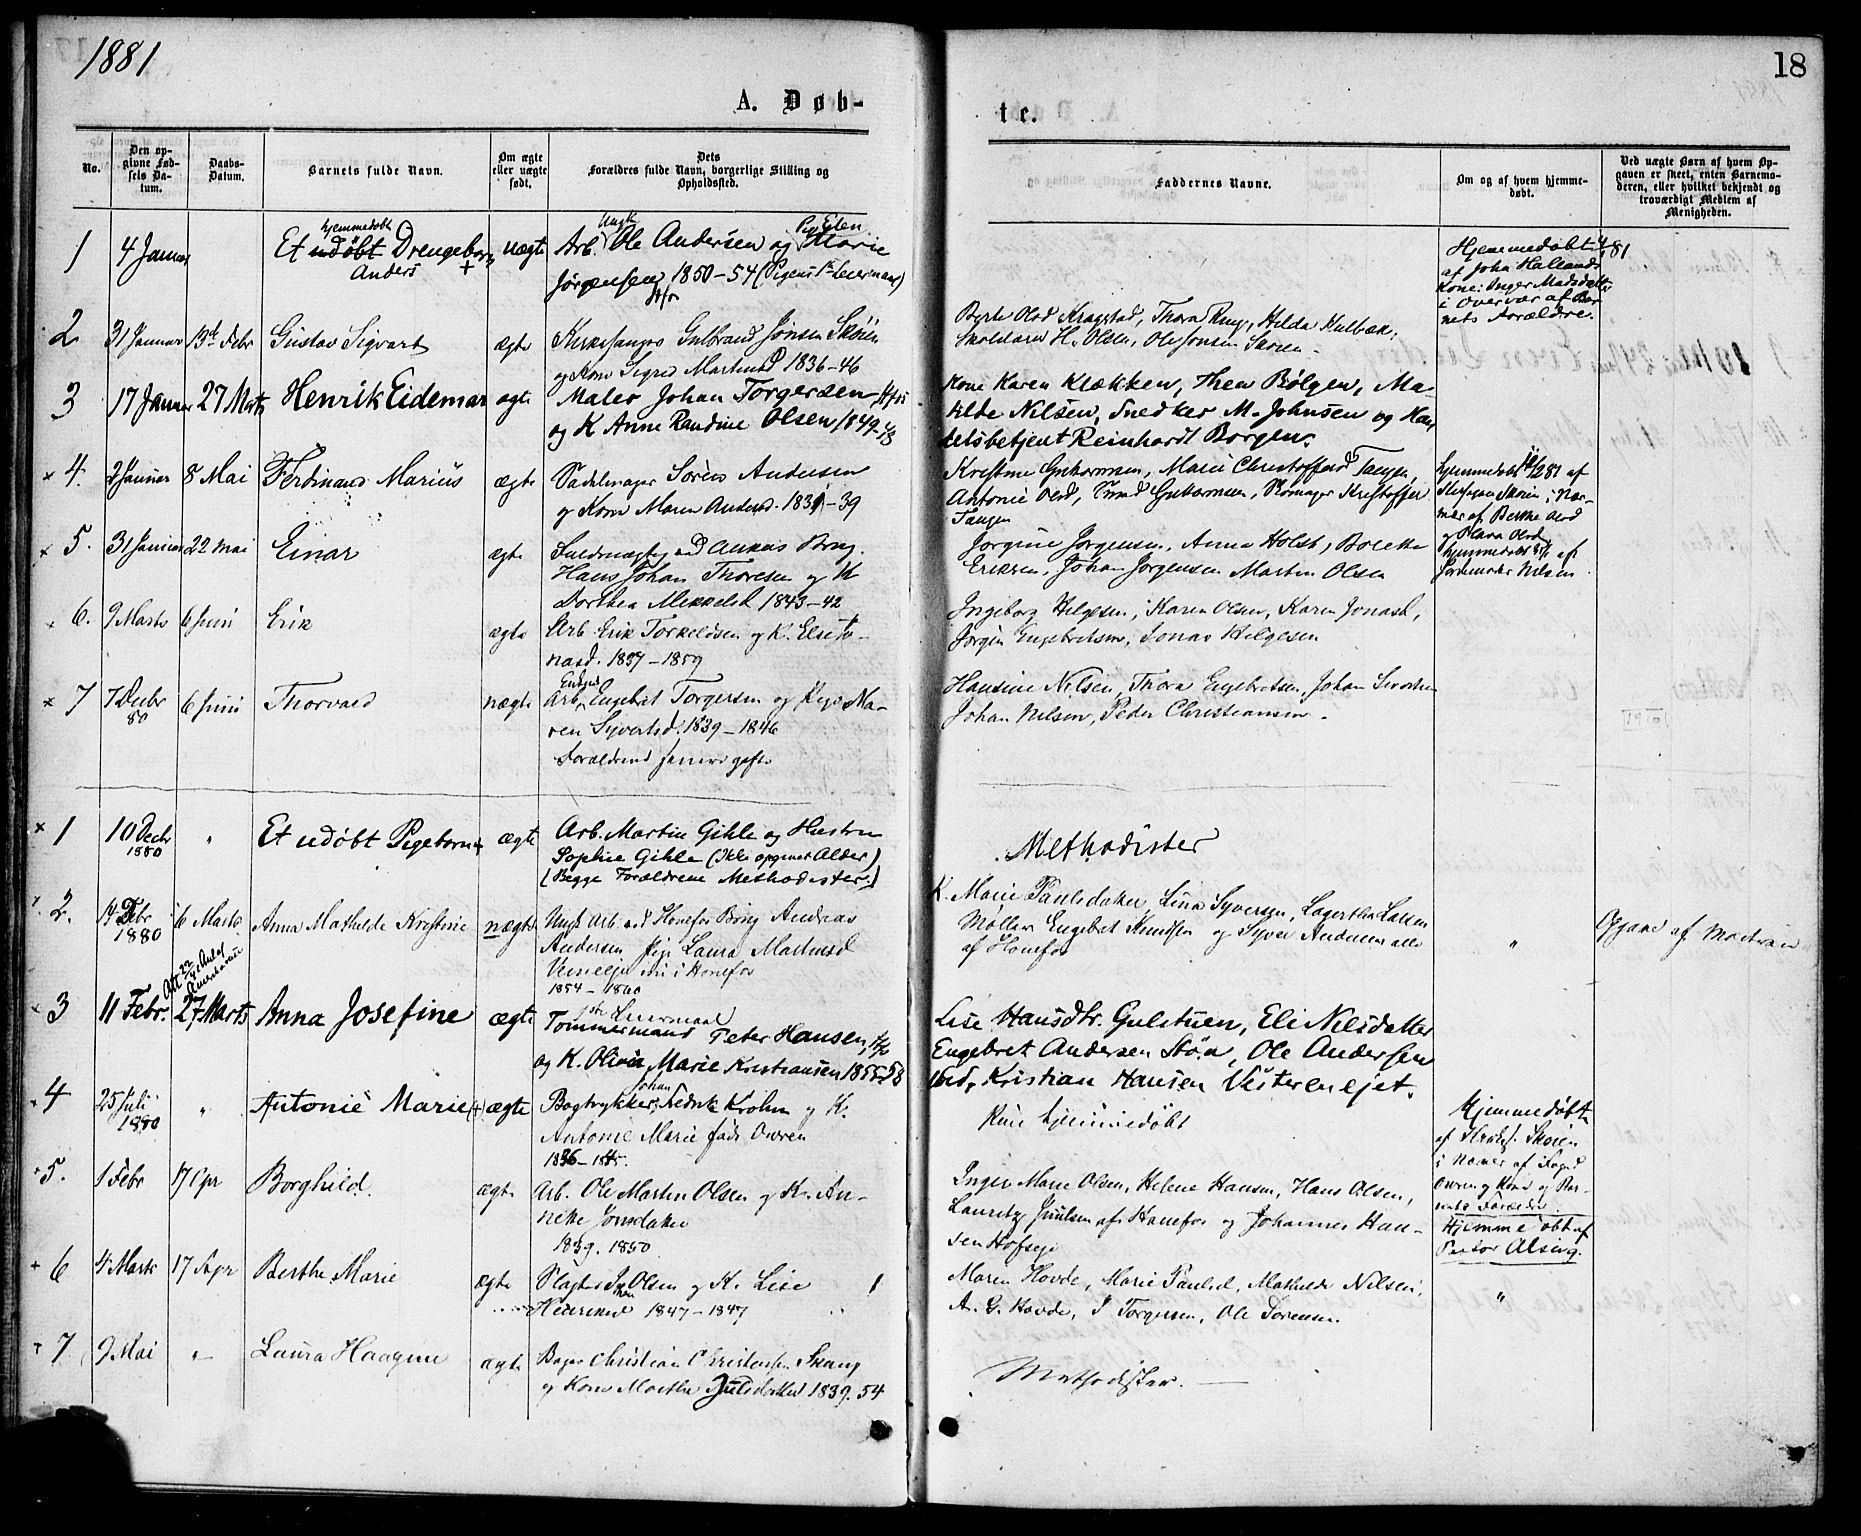 1881
18
A. Døb-
te.
No.
Den op-
givne Fød-
sels Da-
tum.
Daabs-
Datum.
Barnets fulde Navn.
Om ægte
eller uægte
født.
Dets
Forældres fulde Navn, borgerlige Stilling og
Opholdssted.
Faddernes Navne.
Om og af hvem hjemme-
døbt.
Ved uægte Børn af hvem Op-
gaven er skeet, enten Barnemo-
deren, eller hvilket bekjendt og
troværdigt Medlem af
Menigheden.
1 4 Januar
hjemmedøbt
Et udøbt Drengebarn +
Anders
uægte
Ungk
Arb. Ole Andersen og Marie
Jørgensen 1850-54 (Pigens 1ste Leiermaal)
Hjemmedøbt 81
af John Hallands
Kone: Inger Madsdatter
i Overvær af Bar-
nets Forældre.
2 31 Januar 13d Febr Gustav Sigvart ægte
Kirkesanger Gulbrand Jonsen Skøien
og Kone Sigrid Martinsd 1836-46
Olsd Kragstad, Thora Ring, Hilda
Skolelærer H. Olsen, Ole Jonsen Skøien.
3 17 Januar 27 Marts Henrik Eidemar ægte
Maler Johan Torgersen
og K Anne Randine Olsen 1849-48
Kone Karen Klækken, Thea Bølgen, Ma-
thilde Nilsen, Snedker M. Johnsen og Han-
delsbetjent Reinhardt Borgen.
4. 2 Januar 8 Mai Ferdinand Marius ægte
Sadelmager Søren Andersen
og Kone Maren Andersd. 1839-39
Kristine Guttormsen, Marie Christoffersd Tangen,
Antonie Olsd, Guttormsen, Skomager Kristoffer
Tangen
hjemmedøbt 81 af
Skøien i Nær-
vær af Berthe Olsd
og Olava Olsd
5. 31 Januar 22 Mai Einar ægte
Hans Johan Thoresen og K
Dorthea Mikkelsd 1843-42
Jørgine Jørgensen, Anna Holst, Bolette
Eriksen, Johan Jørgensen Martin Olsen
hjemmedøbt af
Jordemoder Nilsen
6. 9 Marts 6 Juni Erik ægte
Arb Erik Torkeldsen og K. Else Jo-
nasd. 1837-1859
Ingeborg Helgesen, Karen Olsen, Karen Jonasd,
Jørgen Engebretsen, Jonas Helgesen
7 7 Decbr 80 6 Juni Thorvald uægte
Arb. Engebret Torgersen og Pige Ma-
ren Syvertsd. 1839-1846
Forældrene senere gifte
Hansine Nilsen, Thora Engebretsen, Johan
Johan Nilsen, Peder Christiansen.
1910
1 10 Decbr 1880 " Et udøbt Pigebarn + ægte
Arb. Martin Gihle og Hustru
Sophie Gihle (Ikke opgivet Alder)
(Begge Forældrene Methodister)
Methodister
2. 14 Febr 1880 6 Marts Anna Mathilde Kristine uægte
Ungk Arb. ved Hønefos Brug Andreas
Andersen Pige Laura Martinsd
i Hønefos
1854-1860
K. Marie Paulsdatter, Lina Syversen, Lagertha Larsen
Møller Engebret Knudsen og Syver Andersen alle
af Hønefos
"
Opgave af Moderen
3 11 Febr. 27 Marts Anna Josefine ægte
1ste Leiermaal
Tømmermand Peter Hansen,
og K. Olivia Marie Kristiansen 1855-58
Lise Hansdtr. Gulstuen, Eli Nilsdatter
Engebret Andersen Støa, Ole Andersen
ibid, Kristian Hansen Vesterenejet.
4 25 Juli 1880 " Antonie Marie + ægte
Johan
Bogtrykker Fredrik Krohn og K.
Antonie Marie født Owren
1836-1845.
Kun hjemmedøbt
Hjemmedøbt
af Skøien
i Nærvær af Foged
Owren og Kone og Bar-
nets Forældre.
5. 1 Febr 17 Apr Borghild. ægte
Arb. Ole Martin Olsen og K. An-
neke Jonsdatter
1839. 1850
Inger Marie Olsen, Helene Hansen, Hans Olsen,
Lauritz Juulsen af Hønefos og Johannes Han-
sen Hofseje
Hjemmedøbt af
Pastor Alsing.
6 4 Marts 17 Apr Berthe Marie ægte
Slagter Olsen og K. Lise
Henriksd 1847-1847
Maren Hovde, Marie Paulsd, Mathilde Nilsen,
A. G. Hovde, J Torgersen, Ole Sørensen
"
7 9 Mai " Laura Haagine ægte
Bager Christian Christensen Skaug
og Kone Marthe Julsdatter 1839. 54
Methodister.